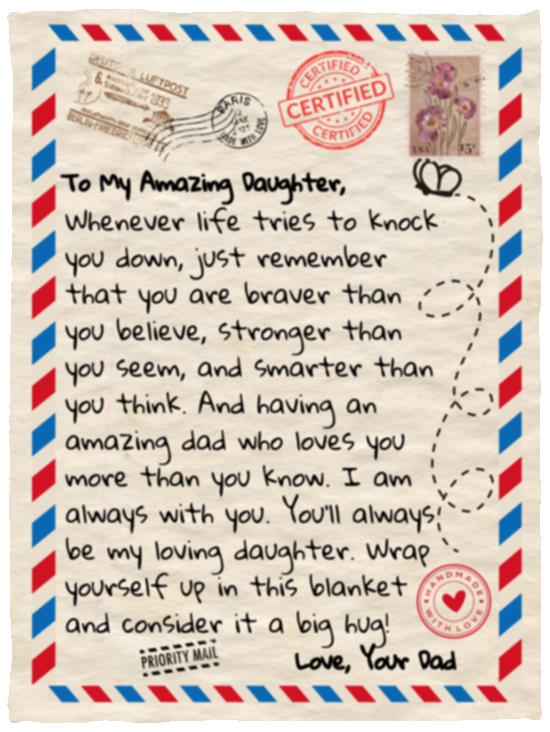 DEUTSCHE LUFTPOST
PARIS
MADE WITH LOVE
CERTIFIED
CERTIFIED
CERTIFIED
USA 15¢
To My Amazing Daughter,
Whenever life tries to knock
you down, just remember
that you are braver than
you believe, stronger than
you seem, and smarter than
you think. And having an
amazing dad who loves you
more than you know. I am
always with you. You'll always
be my loving daughter. Wrap
yourself up in this blanket
and consider it a big hug!
HANDMADE
WITH LOVE
PRIORITY MAIL
Love, Your Dad